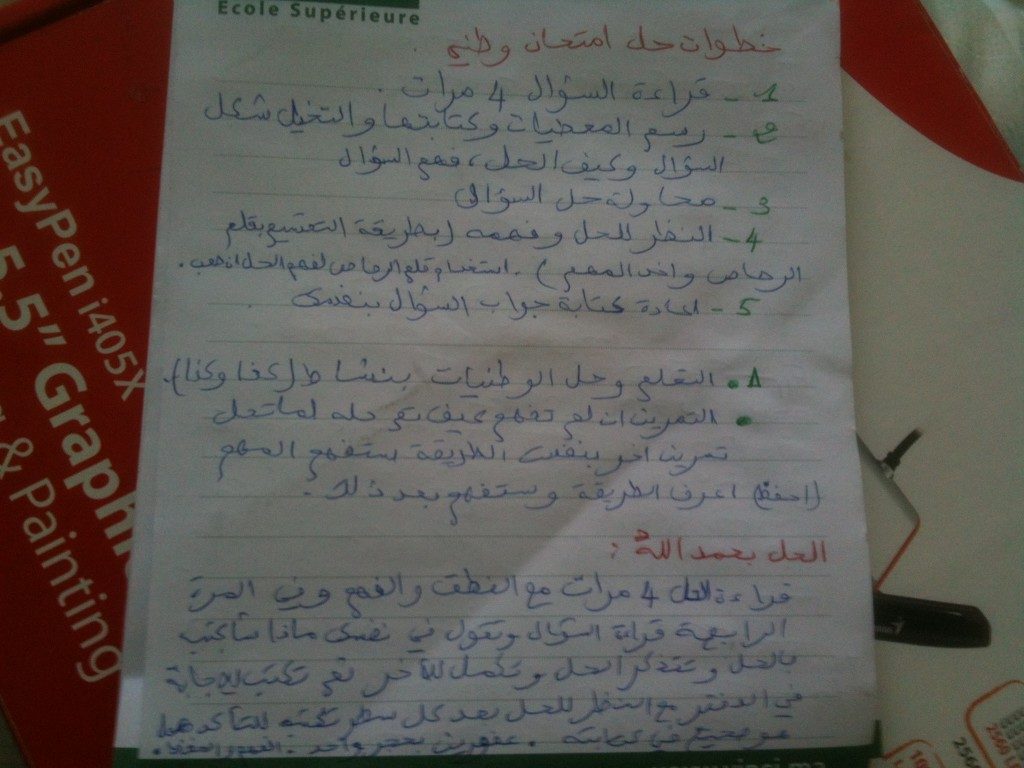 Ecole Supérieure
خطوات حل امتحان وطني
1 - قراءة السؤال 4 مرات .
2 - رسم المعطيات وكتابتها والتخيل شكل
السؤال وكيف الحل، فهم السؤال
3 - محاولة حل السؤال
4 - النظر للحل وفهمه (بطريقة التعتيم بقلم
الرصاص واخد المهم) . استخدام قلم الرصاص لفهم الحل
5 - اعادة كتابة جواب السؤال بنفسي .
التعلم وحل الوطنيات بنشاط
• التمرين ان لم تفهم كيف تم حله لما تحل
تمرين اخر بنفس الطريقة ستفهم المهم
(احفظ) اعرف الطريقة وستفهم بعد ذلك .
الحل بحمد الله :
قراءة الحل 4 مرات مع النطق والفهم وفي المرة
الرابعة قراءة السؤال وتقول في نفسك ماذا سأكتب
بالحل وتتذكر الحل وتكمل للآخر ثم تكتب الاجابة
في الدفتر مع النظر للحل بعد كل سطر تكتبه للتأكد هل
هو صحيح في كتابته . عصفورين بحجر واحد .
EasyPen i405X
5.5" Graphi
& Painting